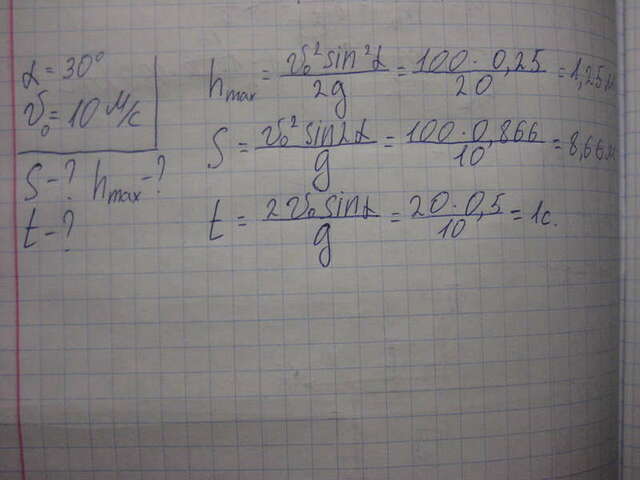 α = 30°
v₀ = 10 м/с
S - ? hmax - ?
t - ?
hmax = v₀² sin² α / 2g = 100 · 0,25 / 20 = 1,25 м
S = v₀² sin 2α / g = 100 · 0,866 / 10 = 8,66 м
t = 2 v₀ sin α / g = 20 · 0,5 / 10 = 1c.